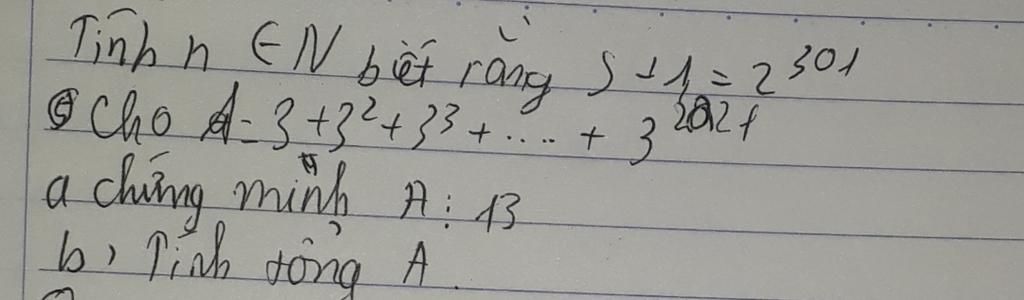 Tính n ∈ N biết rằng S + 1 = 2^301
Cho A = 3 + 3^2 + 3^3 + .... + 3^2021
a chứng minh A ⋮ 13
b, Tính tổng A